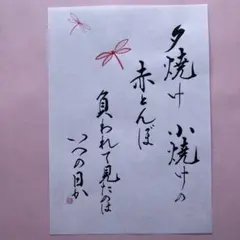 夕焼け 小焼けの
赤とんぼ
負われて見たのは
いつの日か